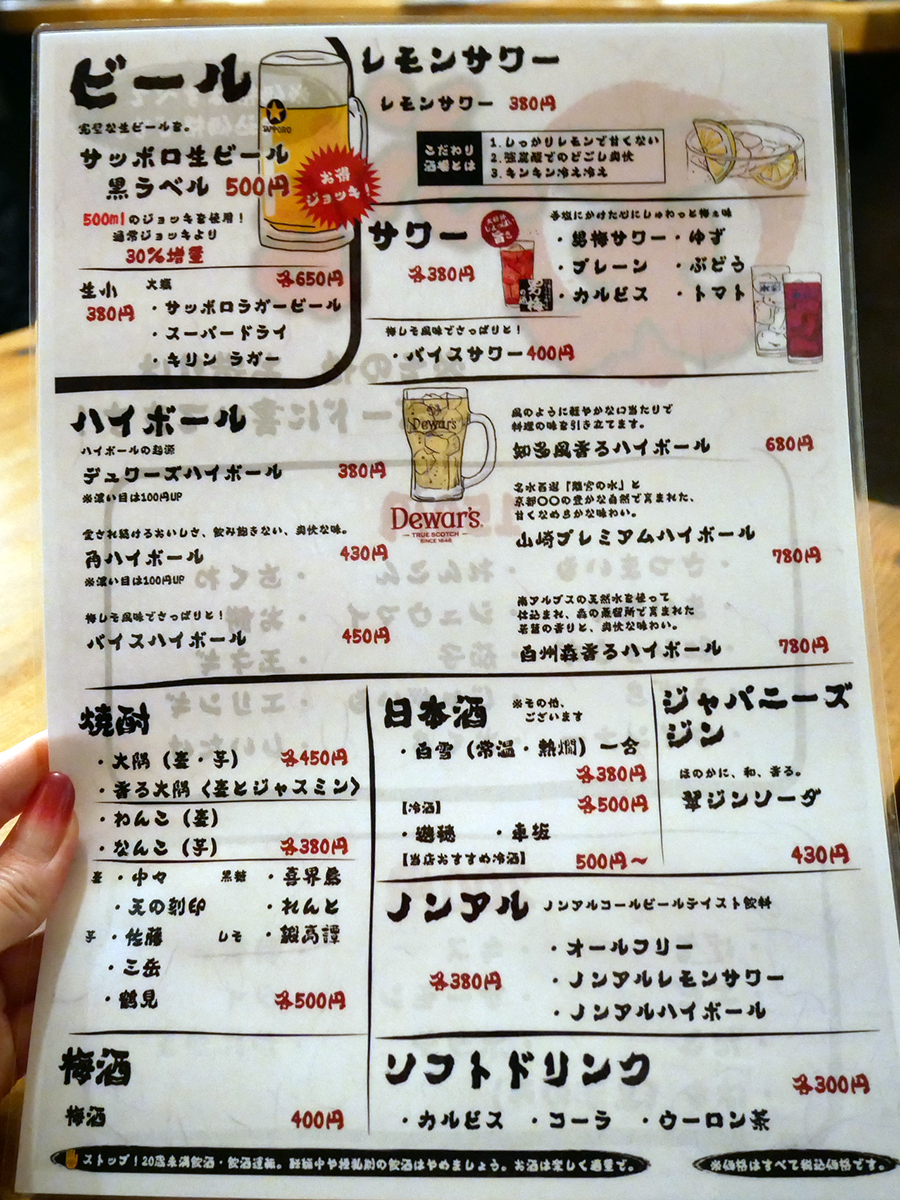 ビール
完璧な生ビールを。
サッポロ生ビール
黒ラベル 500円
SAPPORO
お得
ジョッキ!
500mlのジョッキを使用!
通常ジョッキより
30%増量
生小
380円
大瓶 各650円
・サッポロラガービール
・スーパードライ
・キリン ラガー
レモンサワー
レモンサワー 380円
こだわり
酒場とは
1. しっかりレモンで甘くない
2. 強炭酸でのどごし爽快
3. キンキン冷え冷え
サワー
各380円
大好評
しょっぱい
旨さ
男梅
手塩にかけた心にしゅわっと梅の味
・男梅サワー ・ゆず
・プレーン ・ぶどう
・カルピス ・トマト
梅しそ風味でさっぱりと!
・バイスサワー 400円
ハイボール
ハイボールの起源
デュワーズハイボール 380円
※濃い目は100円UP
愛され続けるおいしさ、飲み飽きない、爽快な味。
角ハイボール 430円
※濃い目は100円UP
梅しそ風味でさっぱりと!
バイスハイボール 450円
Dewar's
Dewar's
TRUE SCOTCH
SINCE 1846
風のように軽やかな口当たりで
料理の味を引き立てます。
知多風香るハイボール 680円
名水百選『離宮の水』と
京都〇〇の豊かな自然で育まれた、
甘くなめらかな味わい。
山崎プレミアムハイボール
780円
南アルプスの天然水を使って
仕込まれ、森の蒸留所で育まれた
若葉の香りと、爽快な味わい。
白州森香るハイボール 780円
焼酎
・大隅(麦・芋) 各450円
・香る大隅〈麦とジャスミン〉
・わんこ(麦)
・なんこ(芋) 各380円
麦 ・中々
・天の刻印
芋 ・佐藤
・三岳
・鶴見
黒糖 ・喜界島
・れんと
しそ ・鍛高譚
各500円
梅酒
梅酒 400円
日本酒
※その他、
ございます
・白雪(常温・熱燗)一合
各380円
【冷酒】 各500円
・車坂
【当店おすすめ冷酒】 500円〜
ジャパニーズ
ジン
ほのかに、和、香る。
翠ジンソーダ
430円
ノンアル
ノンアルコールビールテイスト飲料
各380円
・オールフリー
・ノンアルレモンサワー
・ノンアルハイボール
ソフトドリンク
各300円
・カルピス ・コーラ ・ウーロン茶
ストップ!20歳未満飲酒・飲酒運転。妊娠中や授乳期の飲酒はやめましょう。お酒は楽しく適量で。
※価格はすべて税込価格です。